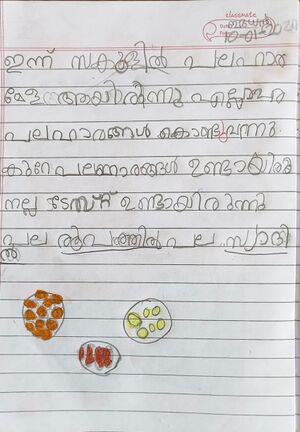 classmate
ബുധൻ
10-01-2024
ഇന്ന് സ്കൂളിൽ പലഹാര
മേള ആയിരുന്നു എല്ലാവരും
പലഹാരങ്ങൾ കൊണ്ടുവന്നു.
കുറേ പലഹാരങ്ങൾ ഉണ്ടായിരു
നല്ല ടേസ്റ്റ് ഉണ്ടായിരുന്നു
പല രൂപത്തിൽ പല സ്വാദി
ൽ